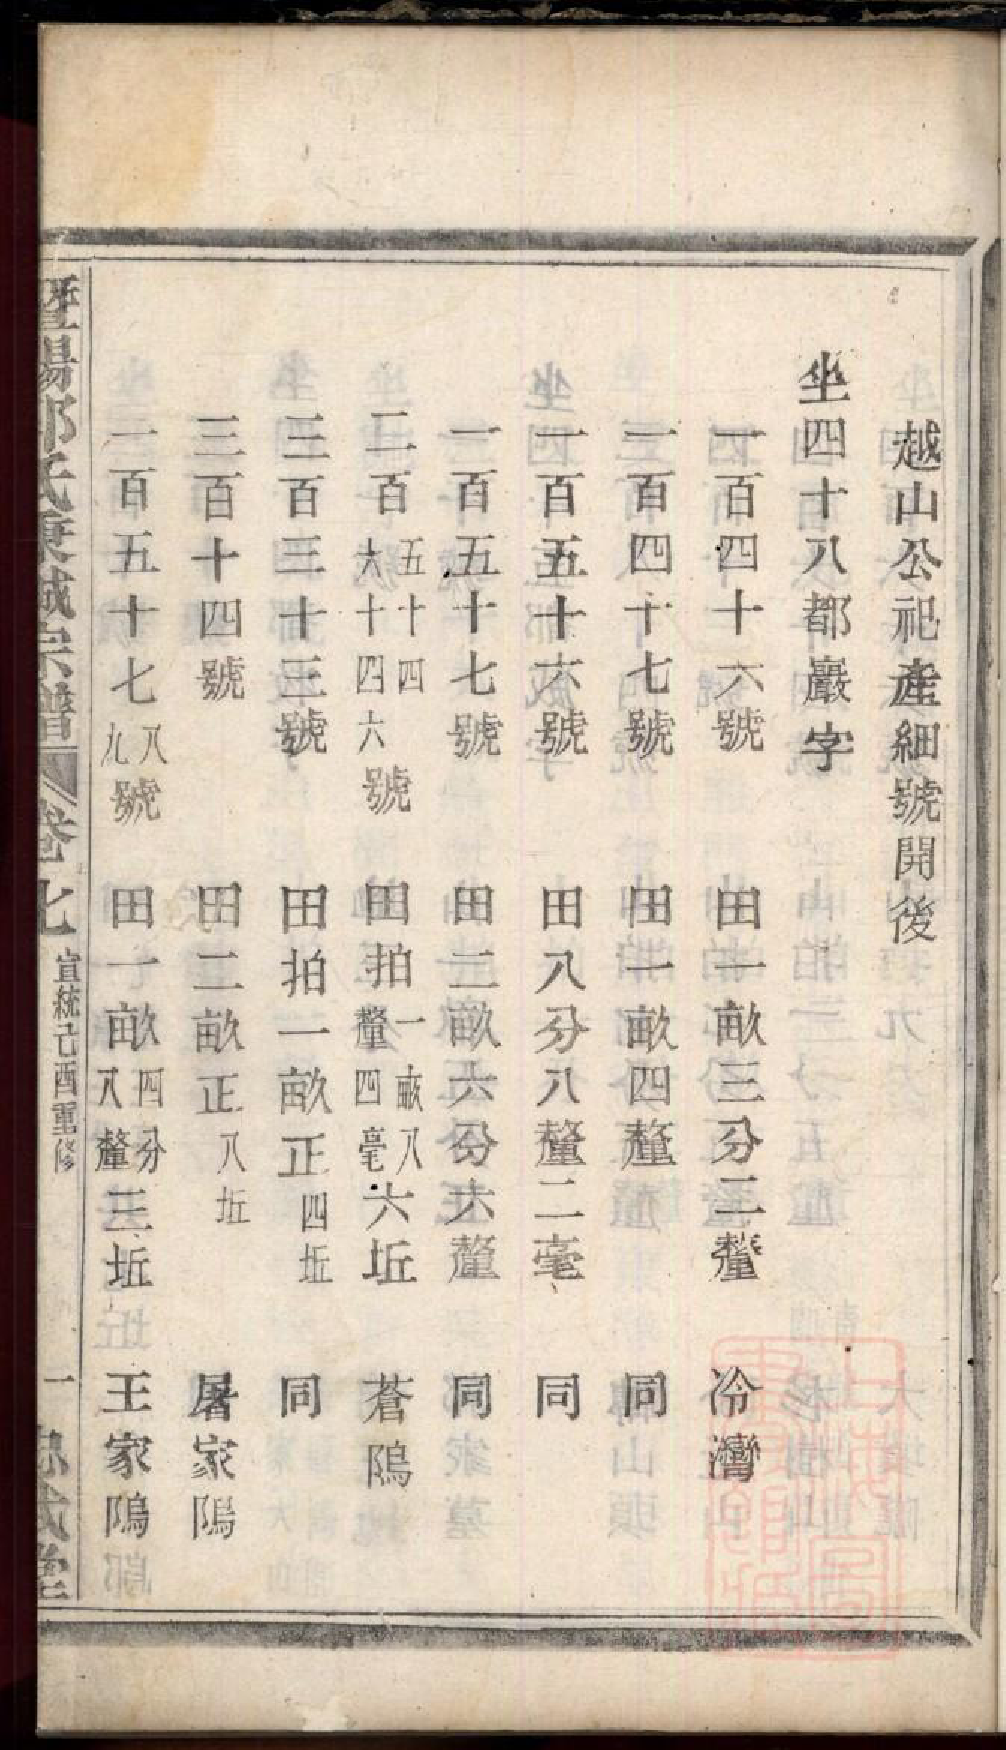 越山公祀產細號開後
坐四十八都巖字
一百四十六號 田一畝三分二釐 冷灣
一百四十七號 田一畝四釐 同
一百五十六號 田八分八釐二毫 同
一百五十七號 田二畝六分六釐 同
二百五十四六十四六號 田拍一畝八釐四毫六坵 蒼隖
三百三十三號 田拍一畝正四坵 同
三百十四號 田二畝正八坵 屠家隖
一百五十七八九號 田一畝四分八釐三坵 王家隖
暨陽邱氏東城宗譜 卷七 宣統己酉重修 一